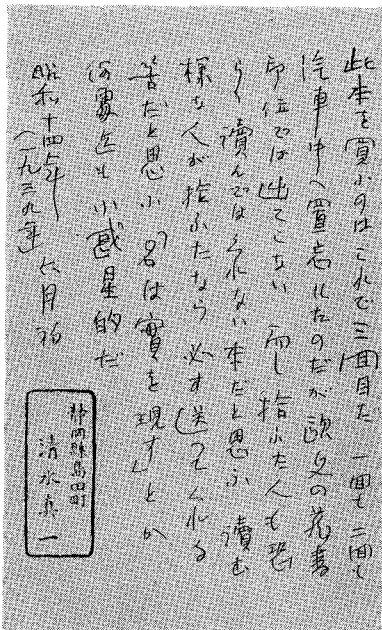 此本を買ふのはこれで三回目だ 一回も二回も
汽車中へ置忘れたのだが 欧文の蔵書
印位では出てこない 而し拾ふた人も恐
らく讀んではくれない本だと思ふ 讀む
様な人が拾ふたなら必ず送つてくれる
筈だと思ふ 「名は實を現す」とか
何處迄も小惑星的だ
昭和十四年(一九三九年) 六月
静岡縣島田町
清水真一